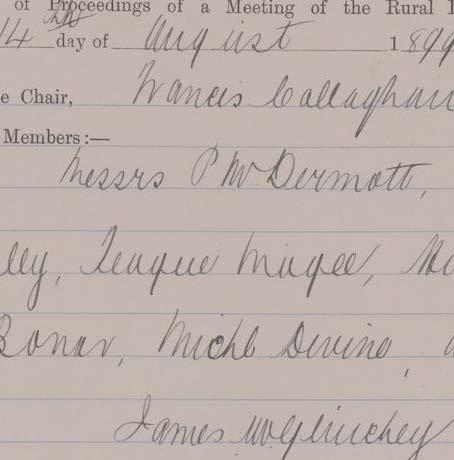 of Proceedings of a Meeting of the Rural
14th day of August 1899
e Chair, Francis Callaghan
Members:—
Messrs P McDermott,
lley, Teague Magee, Mi
Bonar, Michl Devine,
James McGlinchey